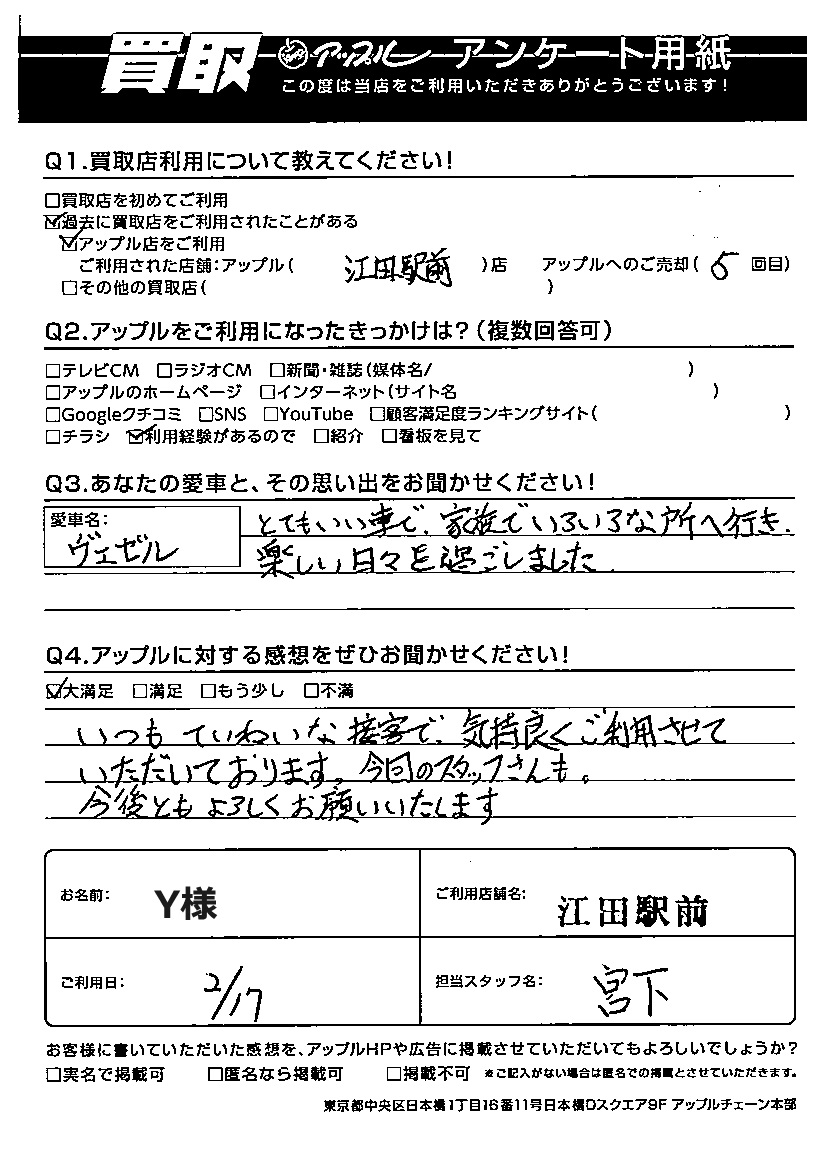 買取 アップル アンケート用紙
この度は当店をご利用いただきありがとうございます!
Q1.買取店利用について教えてください!
□買取店を初めてご利用
☑過去に買取店をご利用されたことがある
☑アップル店をご利用
ご利用された店舗:アップル( 江田駅前 )店 アップルへのご売却( 5 回目)
□その他の買取店( )
Q2.アップルをご利用になったきっかけは?(複数回答可)
□テレビCM □ラジオCM □新聞・雑誌(媒体名/ )
□アップルのホームページ □インターネット(サイト名 )
□Googleクチコミ □SNS □YouTube □顧客満足度ランキングサイト( )
□チラシ ☑利用経験があるので □紹介 □看板を見て
Q3.あなたの愛車と、その思い出をお聞かせください!
愛車名:
ヴェゼル
とてもいい車で、家族でいろいろな所へ行き、
楽しい日々を過ごしました。
Q4.アップルに対する感想をぜひお聞かせください!
☑大満足 □満足 □もう少し □不満
いつも ていねいな接客で、気持良くご利用させて
いただいております。今回のスタッフさんも。
今後とも よろしくお願いいたします
お名前: Y様 ご利用店舗名: 江田駅前
ご利用日: 2/17 担当スタッフ名: 宮下
お客様に書いていただいた感想を、アップルHPや広告に掲載させていただいてもよろしいでしょうか?
□実名で掲載可 □匿名なら掲載可 □掲載不可 ※ご記入がない場合は匿名での掲載とさせていただきます。
東京都中央区日本橋1丁目16番11号日本橋Dスクエア9F アップルチェーン本部